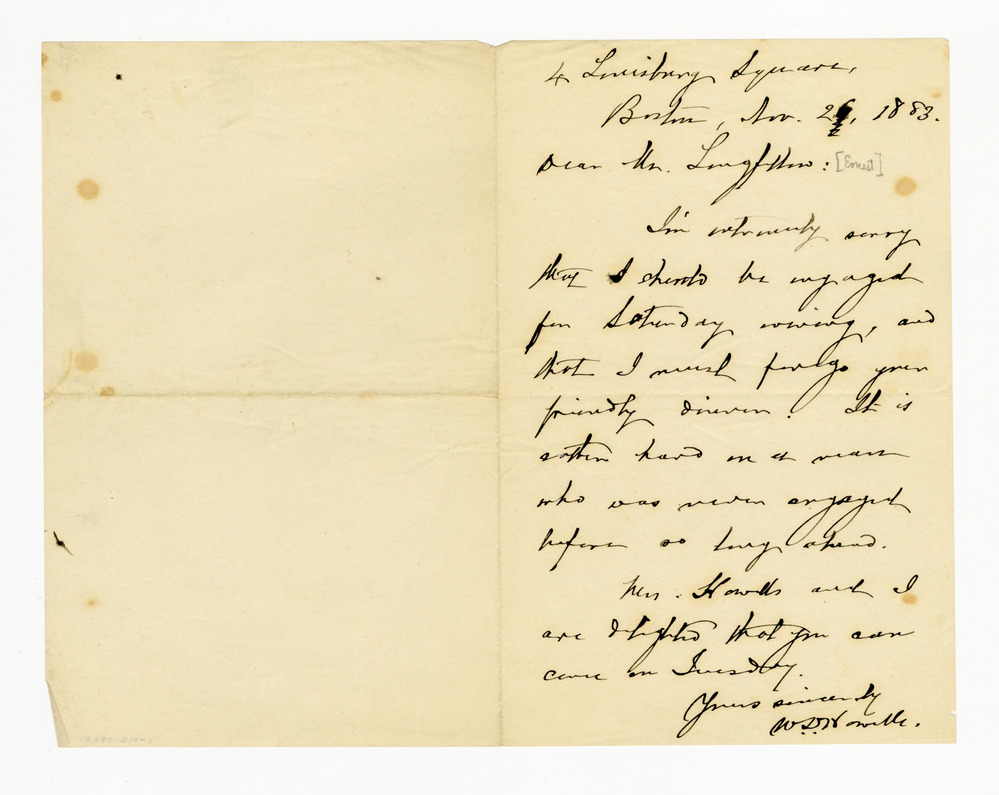 4 Louisburg Square,
Boston, Nov. 2, 1883.
Dear Mr. Longfellow: [Ernest]
I'm extremely sorry
that I should be engaged
for Saturday evening, and
that I must forego your
friendly dinner. It is
rather hard on a man
who was never engaged
before so long ahead.
Mrs. Howells and I
are delighted that you can
come on Tuesday.
Yours sincerely
W.D. Howells.